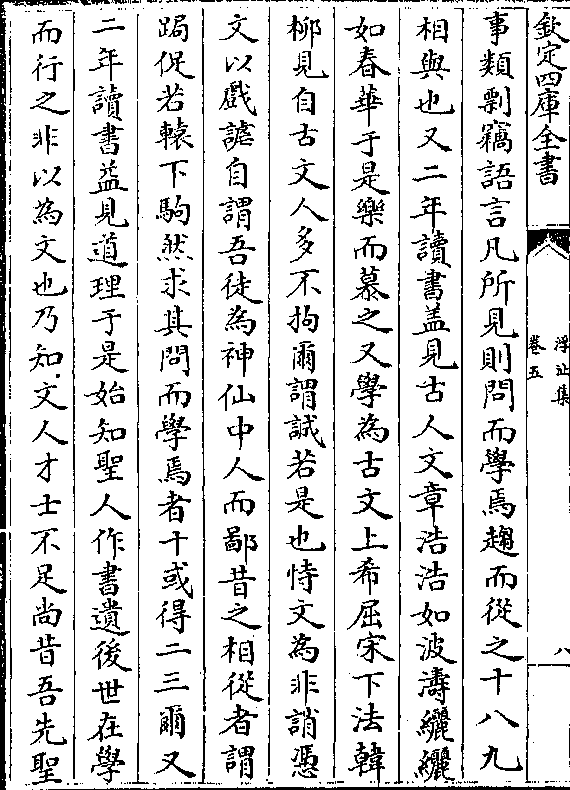 欽定四庫全書
浮沚集
卷五
八
事類剽竊語言凡所見則問而學焉趨而從之十八九
相與也又二年讀書盖見古人文章浩浩如波濤纚纚
如春華于是樂而慕之又學為古文上希屈宋下法韓
柳見自古文人多不拘爾謂誠若是也恃文為非誚憑
文以戲謔自謂吾徒為神仙中人而鄙昔之相從者謂
跼促若轅下駒然求其問而學焉者十或得二三爾又
二年讀書益見道理于是始知聖人作書遺後世在學
而行之非以為文也乃知文人才士不足尚昔吾先聖